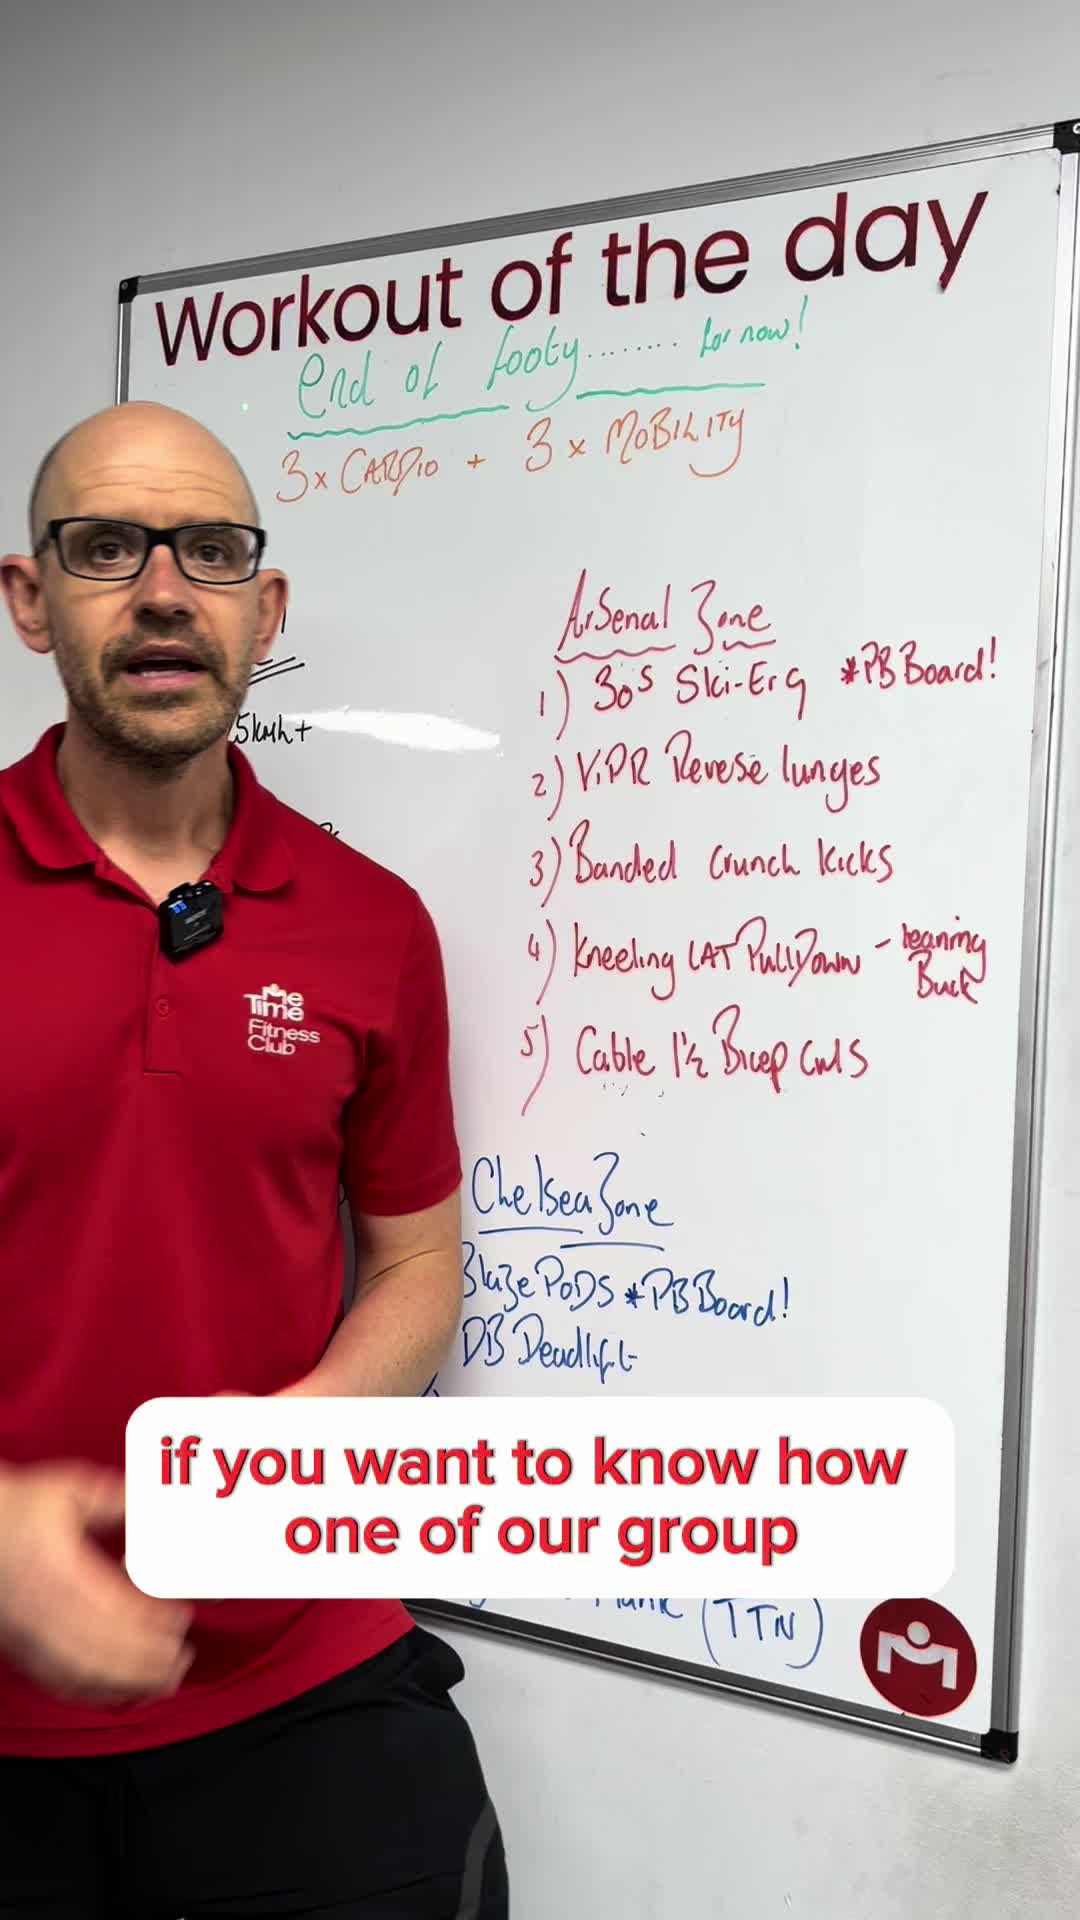 Workout of the day
End of footy........ for now!
3x CARDIO + 3 x MOBILITY
5kmh+
Arsenal Zone
1) 30s Ski-Erg *PB Board!
2) ViPR Reverse lunges
3) Banded crunch kicks
4) Kneeling LAT PullDown - leaning
Back
5) Cable 1½ Bicep Curls
Chelsea Zone
BlazePODS *PB Board!
DB Deadlift
(TTN)
Me
Time
Fitness
Club
if you want to know how
one of our group